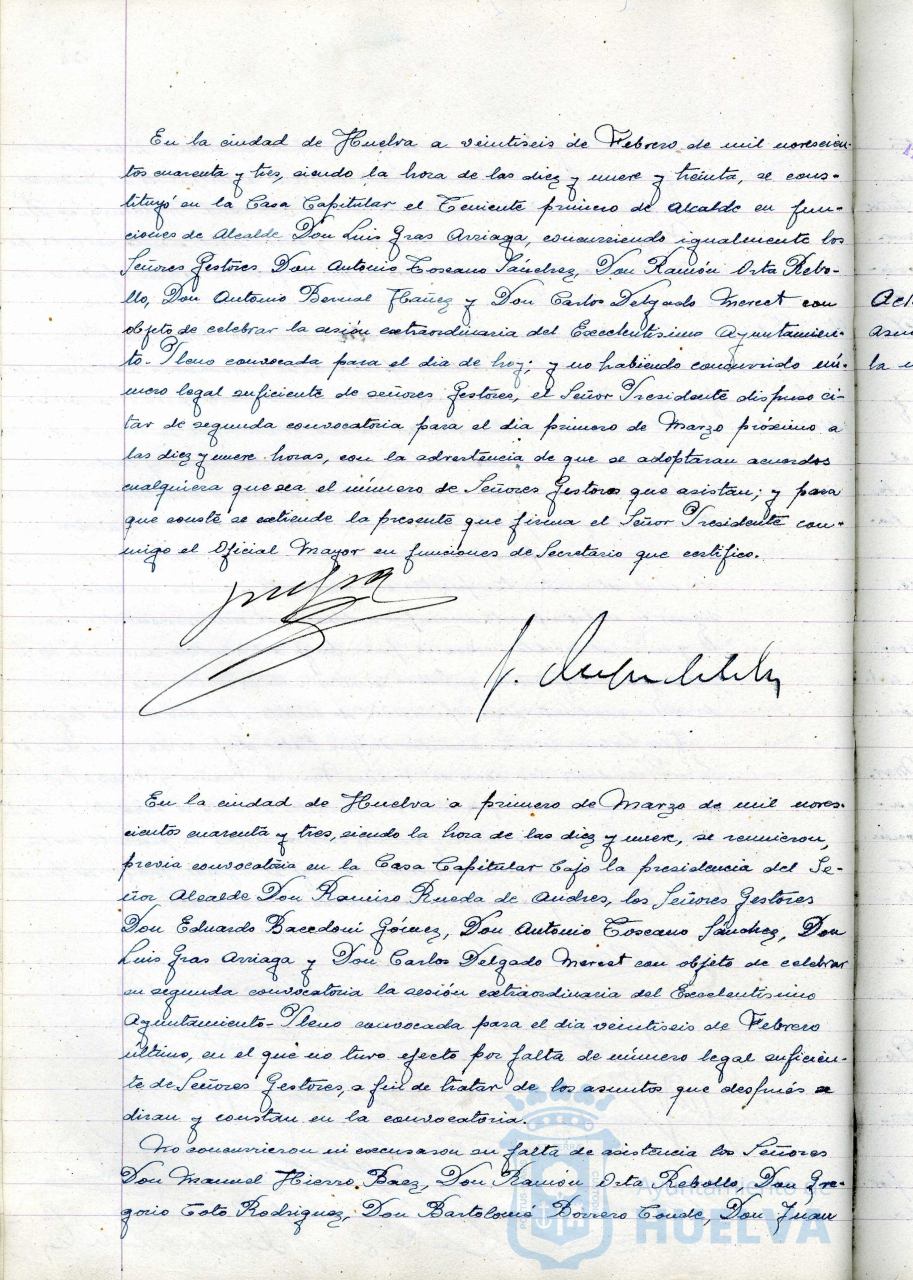 En la ciudad de Huelva a veintiseis de Febrero de mil novescien-
tos cuarenta y tres, siendo la hora de las diez y nueve y treinta, se cons-
tituyó en la Casa Capitular el Teniente primero de Alcalde en fun-
ciones de Alcalde Don Luis Gras Arriaga, concurriendo igualmente los
Señores Gestores Don Antonio Toscano Sánchez, Don Ramón Orta Rebo-
llo, Don Antonio Bernal Ibáñez y Don Carlos Delgado Merest con
objeto de celebrar la sesión extraordinaria del Excelentisimo Ayuntamien-
to-Pleno convocada para el dia de hoy; y no habiendo concurrido nú-
mero legal suficiente de señores Gestores, el Señor Presidente dispuso ci-
tar de segunda convocatoria para el dia primero de Marzo próximo a
las diez y nueve horas, con la advertencia de que se adoptaran acuerdos
cualquiera que sea el número de Señores Gestores que asistan; y para
que conste se extiende la presente que firma el Señor Presidente con-
migo el Oficial Mayor en funciones de Secretario que certifico.
En la ciudad de Huelva a primero de Marzo de mil noves-
cientos cuarenta y tres, siendo la hora de las diez y nueve, se reunieron,
previa convocatoria en la Casa Capitular bajo la presidencia del Se-
ñor Alcalde Don Ramiro Rueda de Andres, los Señores Gestores
Don Eduardo Bacedoni Gómez, Don Antonio Toscano Sánchez, Don
Luis Gras Arriaga y Don Carlos Delgado Merest con objeto de celebrar
en segunda convocatoria la sesión extraordinaria del Excelentisimo
Ayuntamiento-Pleno convocada para el dia veintiseis de Febrero
último, en el que no tuvo efecto por falta de número legal suficien-
te de Señores Gestores, a fin de tratar de los asuntos que después se
diran y constan en la convocatoria.
No concurrieron ni excusaron su falta de asistencia los Señores
Don Manuel Hierro Baez, Don Ramón Orta Rebollo, Don Gre-
gorio Toto Rodriguez, Don Bartolomé Borrero Conde, Don Juan
Ayuntamiento de
HUELVA